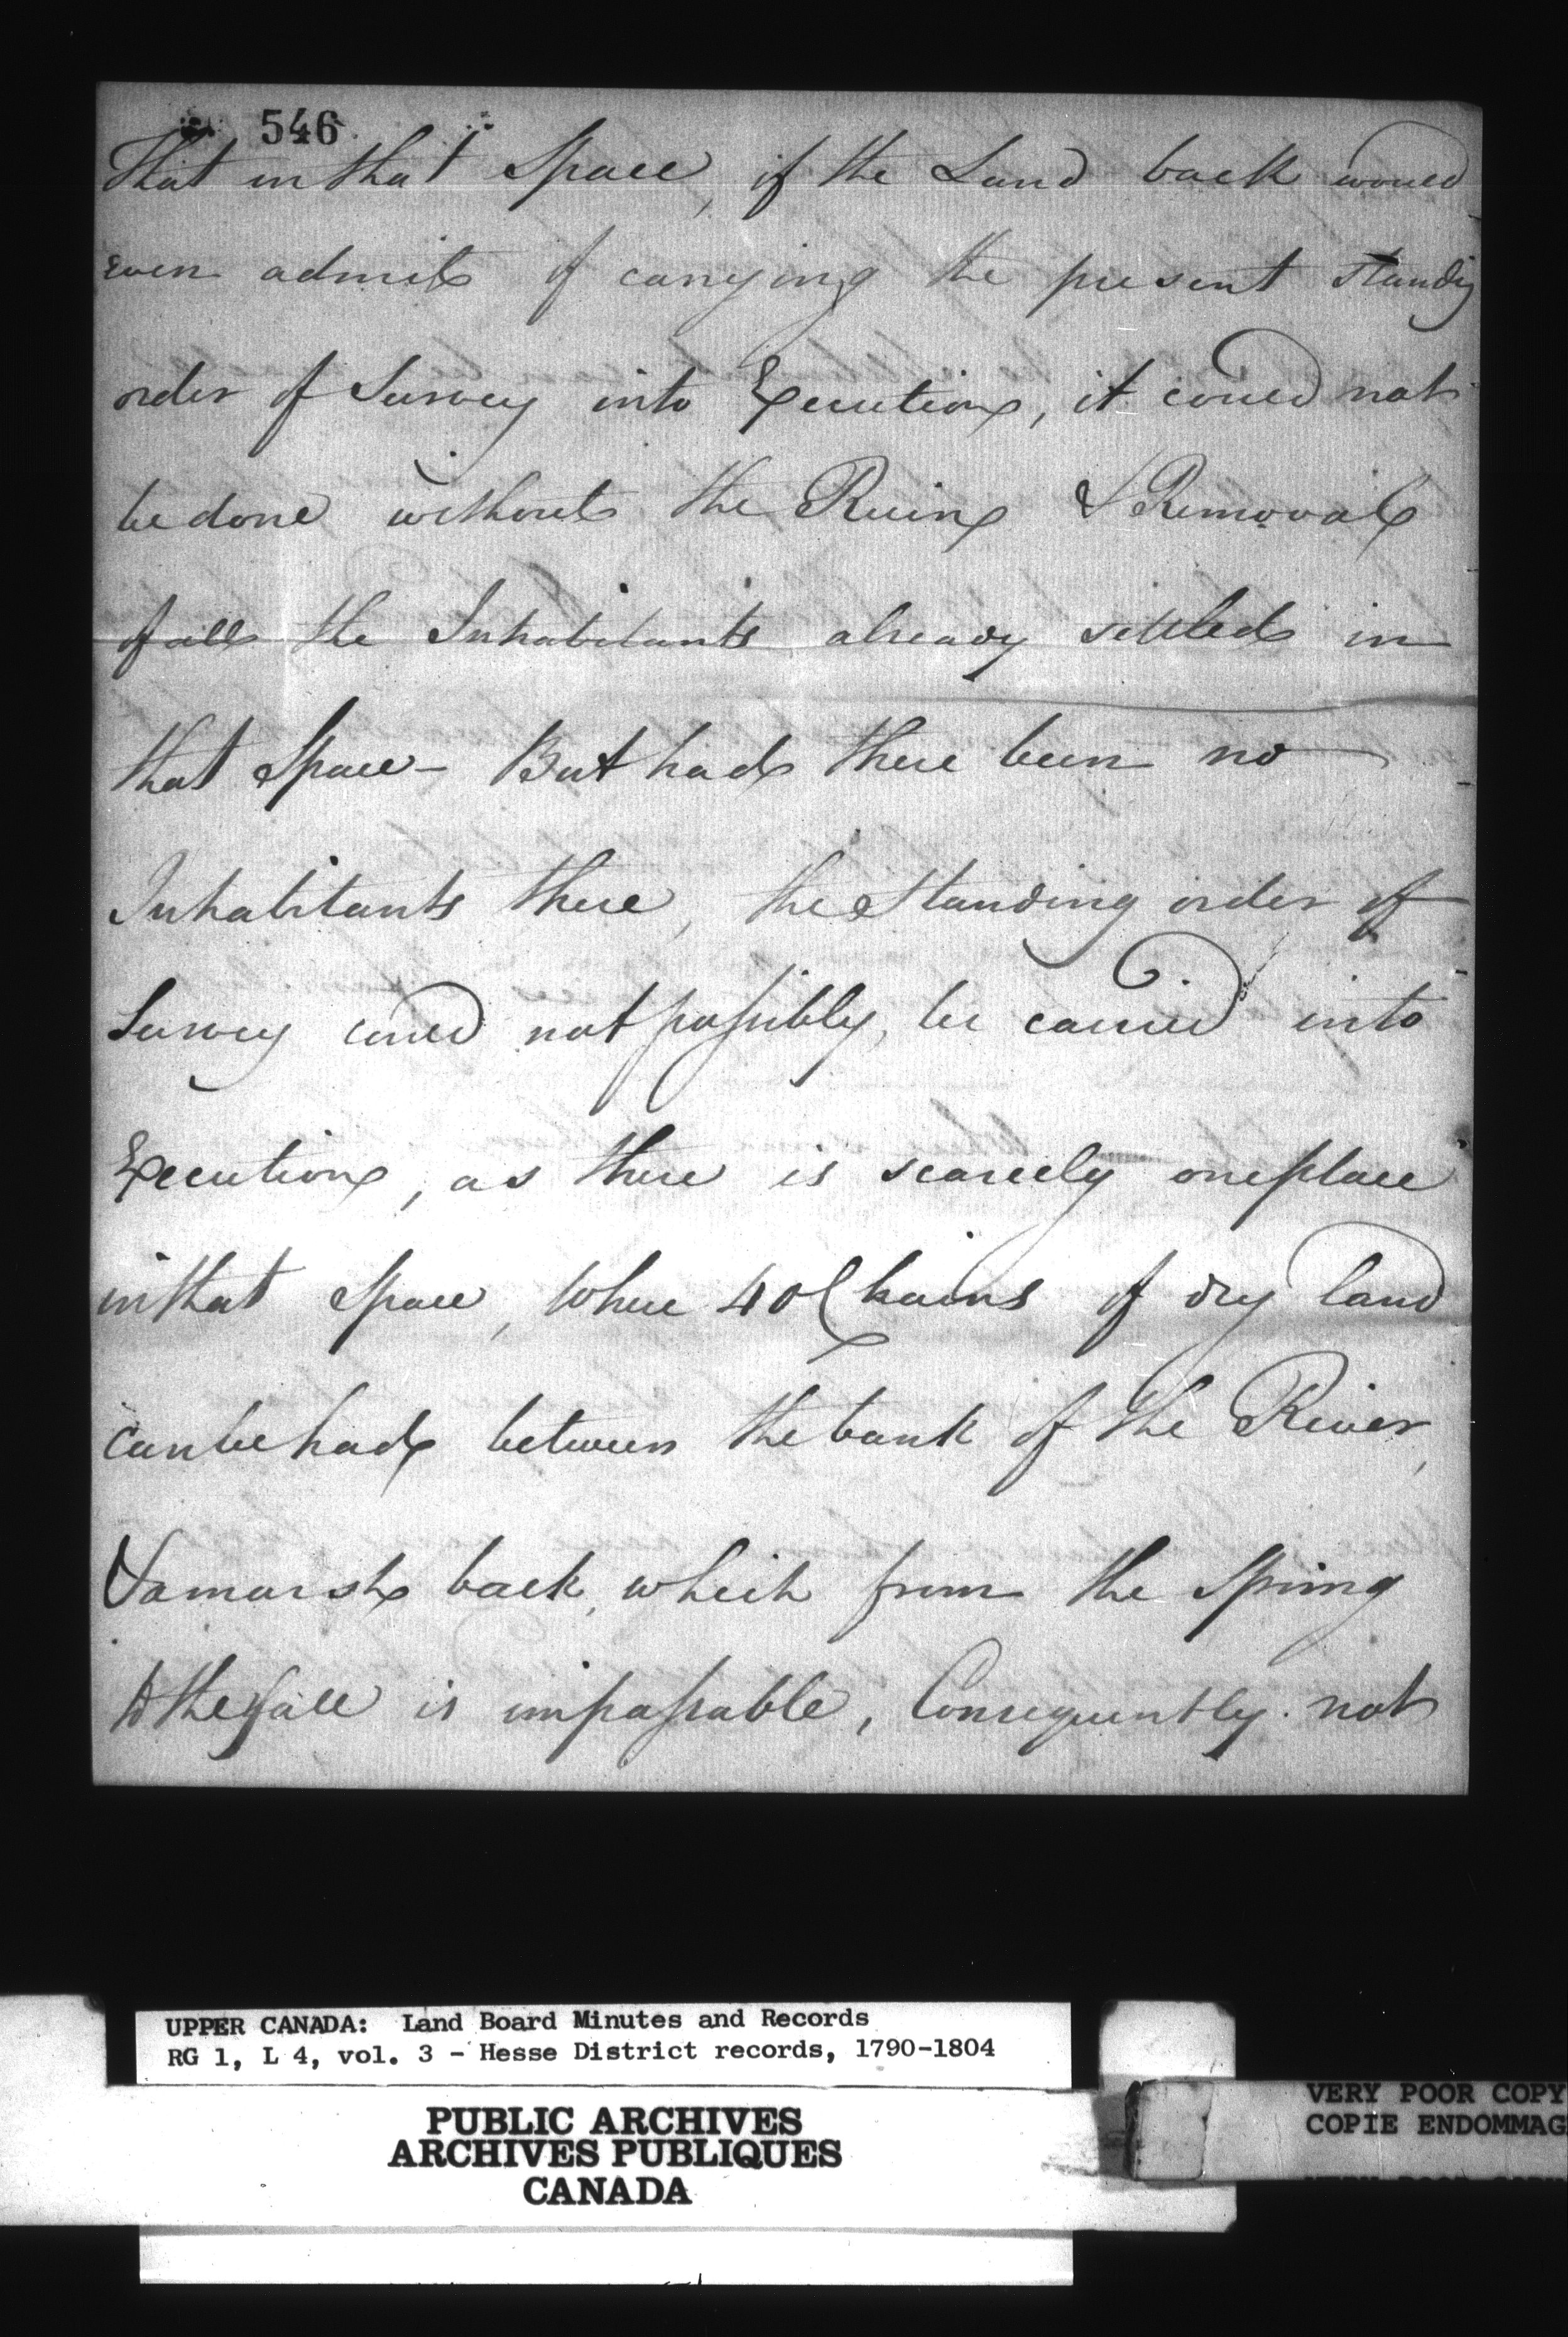 546
that in that Space, if the Land back would
even admit of carrying the present standg
order of Survey into Execution, it could not
be done without the Ruin & Removal
of all the Inhabitants already settled in
that Space - But had there been no
Inhabitants there, the standing order of
Survey could not possibly, be carried into
Execution, as there is scarcely one place
in that space, where 40 Chains of dry land
can be had between the bank of the River,
& a marsh back, which from the Spring
to the fall is impassable, Consequently not
UPPER CANADA: Land Board Minutes and Records
RG 1, L 4, vol. 3 - Hesse District records, 1790-1804
PUBLIC ARCHIVES
ARCHIVES PUBLIQUES
CANADA
VERY POOR COPY
COPIE ENDOMMAG